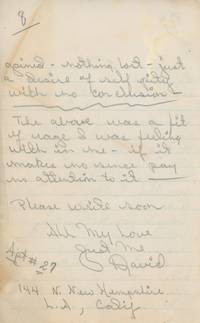 8
gained - nothing lost - just
a desire of self pity
with no conclusion!
The above was a fit
of rage I was feeling
with in me - if it
makes no sence pay
no attention to it
Please write soon
All My Love
Just Me
David
Apt # 27
144 N. New Hampshire
L.A., Calif